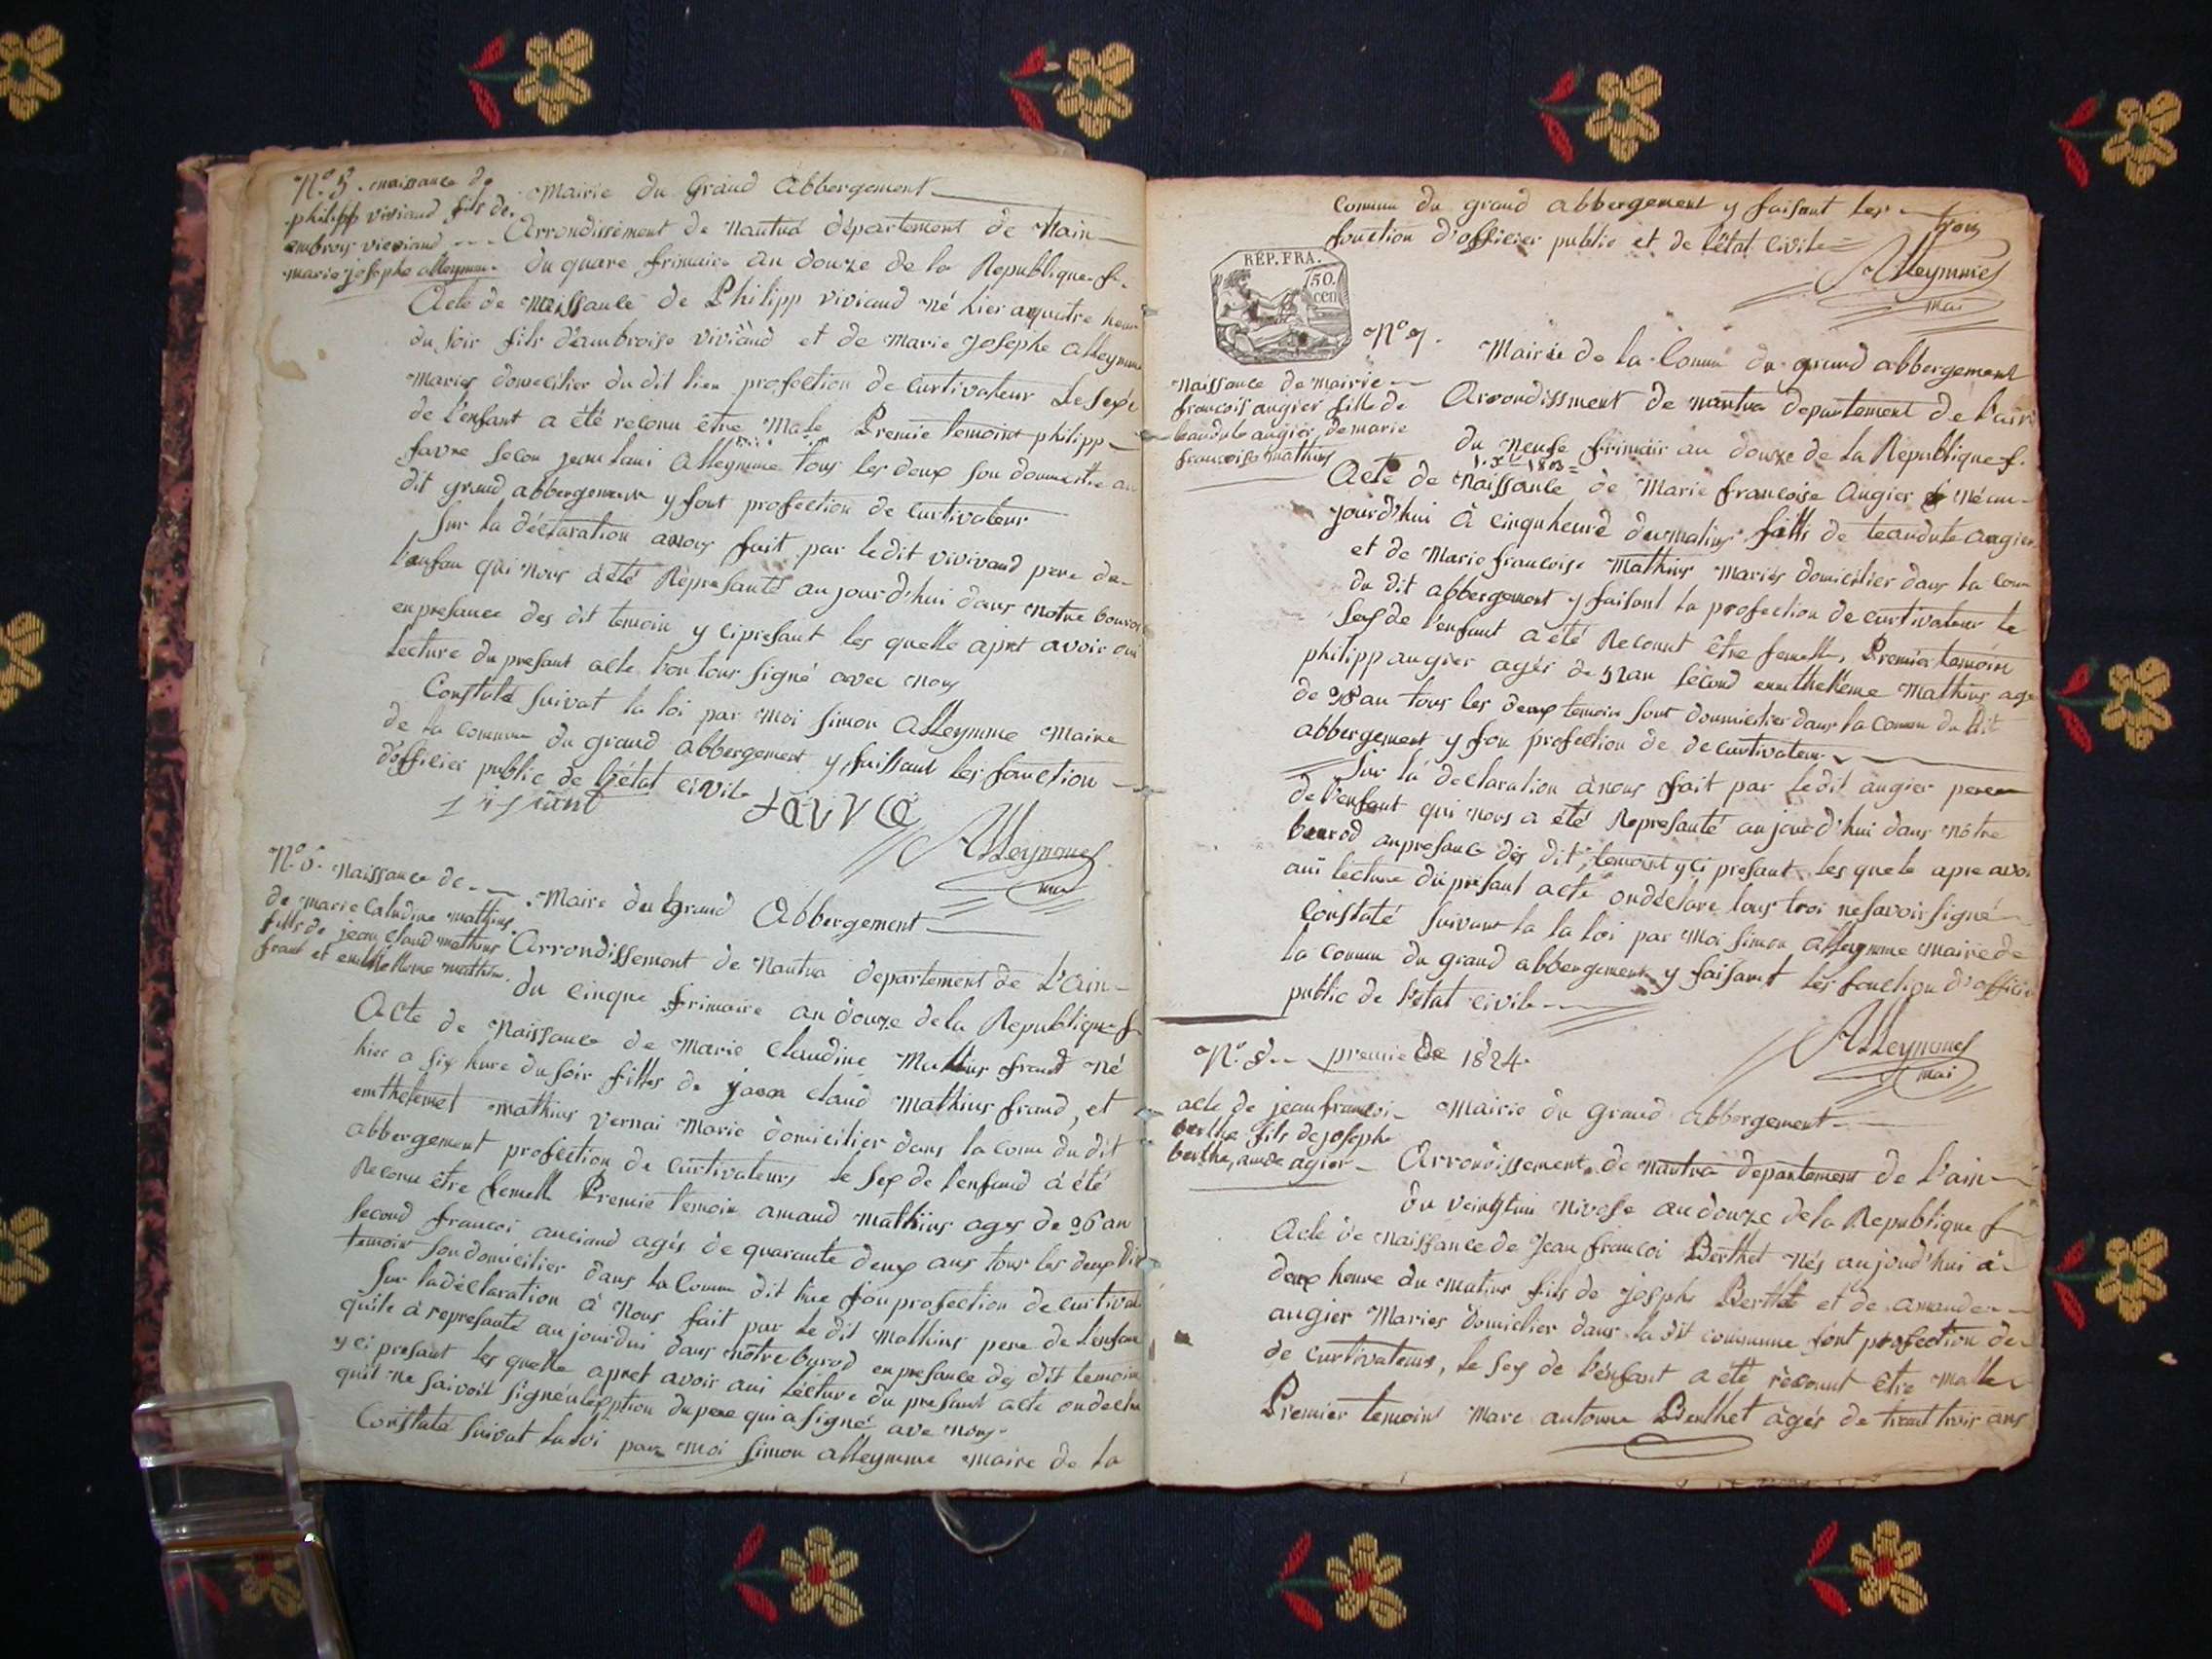 N.° 5. naissance de
philipp viviand fils de
ambroys vieviand
marie josephe alleymme
Mairie du Grand Abbergement
Arrondissement de Nantua département de l'ain
du quare frimaire an douze de la Republique f.
Acte de Naissance de Philipp viviand né hier a quatre heur
du soir fils d'ambroise viviand et de marie Josephe alleymme
mariés domicilier du dit lieu profection de curtivateur Le sexe
de l'enfant a été reconu être Male Premie temoint philipp
favre secon jean loui Alleymme tous les deux son
dit grand abbergement y font profection de curtivateur
Sur la déclaration anous fait par le dit vivivand pere de
l'enfan qui nous a été Représanté au jour d'hui dans notre bouro
en presance des dit temoin y ci présant les quelle apret avoir oui
Lecture du présant acte l'on tous signé avec nous
Constaté suivat la loi par moi Simon Alleymme Maire
de la commun du grand abbergement y faissant les fonction
d'officier public de l'état civile
favre
Alleymmes
mai
N.° 6. Naissance de
de marie Caludine mathius
filts de jean claud mathius
fraud et
Maire du grand Abbergement
Arrondissement de Nantua departement de L'ain
du cinque frimaire an douze de la Republique f
Acte de Naissance de Marie Claudine Mathius fraud né
hier a six hure du soir filtes de jean claud Mathius fraud, et
emthelemet mathius vernai Marie domicilier dans la comu du dit
abbergement profection de curtivateurs le sex de l'enfand a été
Reconu être femelle Premie temoin amand Mathius ages de 36 an
second francoi anciand agés de quarante deux ans tous les deux dit
temoin son domicilier dans la Comun dit lieu fon profection de curtivat
Sur la déclaration a Nous fait par le dit Mathius pere de l'enfan
qu'ile a represanté au jourdui dans nôtre burod en presance des dit temoin
y ci présant les quelle apret avoir oui Lecture du présant acte on declare
qu'il ne saivoit signé a l'exseption du pere qui a signé ave nous
Constaté suivat la loi par Moi Simon alleymme Maire de la
Comun du grand abbergement y faisant les
fonction d'officier public et de l'état civile
trois
Alleymmes
mai
RÉP. FRA.
50.
cen
N.° 7.
Mairie de la Comun du grand abbergement
Naissance de mairie
francois augier fille de
leandute augier de marie
francoise mathius
Arrondissment de nantua departement de l'ain
du neufe frimair an douze de la Republique f.
1. Xbre 1803
Acte de Naissance de Marie francoise Augier Né au
jourd'hui à cinqu heure du matins filts de leandute augier
et de Marie francoise Mathius Mariés domicilier dans la com
du dit abbergement y faisant la profection de curtivateur le
Sex de l'enfant a été Reconut être femelle, Premier temoin
philipp augier agés de 52 an sécond Mathius age
de 28 an tous les deux temoin sont doumicilier dans la comun du dit
abbergement y fon profection de de curtivateur
Sur la déclaration a nous fait par le dit augier pere
de l'enfant qui nous a été Represanté au jour d'hui dans nôtre
bourod an presance des dit temoint y ci presant les quele apre avoi
oui lecture du présant acte on déclare tous troi ne savoir signé
Constaté suivant la la loi par Moi Simon Alleymme Maire de
la comun du grand abbergement y faisant les fonction d'officie
public de l'état civile
Alleymmes
mai
N.° 8. premie 1824.
acte de jean francoi
berthe fils de joseph
berthe, amde agier
Mairie du Grand Abbergement
Arrondissement de nantua departement de l'ain
du veingtun nivose an douze de la Republique f
Acte de Naissance de Jean francoi Berthet Nés au jourd'hui a
deux heure du matins fils de Joseph Berthet et de amande
augier Maries domicilier dans la dit commune font profection de
de curtivateurs, le sex de l'enfant a été reconut être Malle
Premier temoint Marc antonne Berthet âgés de trant trois ans